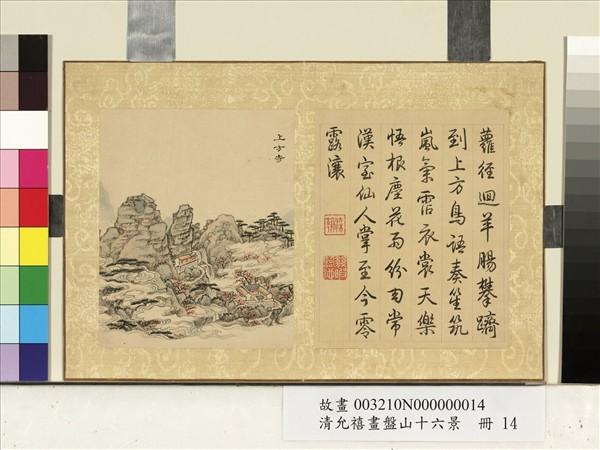 上方寺
蘿徑迴羊腸攀躋
到上方鳥語奏笙筑
嵐氣霑衣裳天樂
悟根塵花雨紛常
漢宮仙人掌至今零
露瀼
故畫 003210N000000014
清允禧畫盤山十六景 冊 14